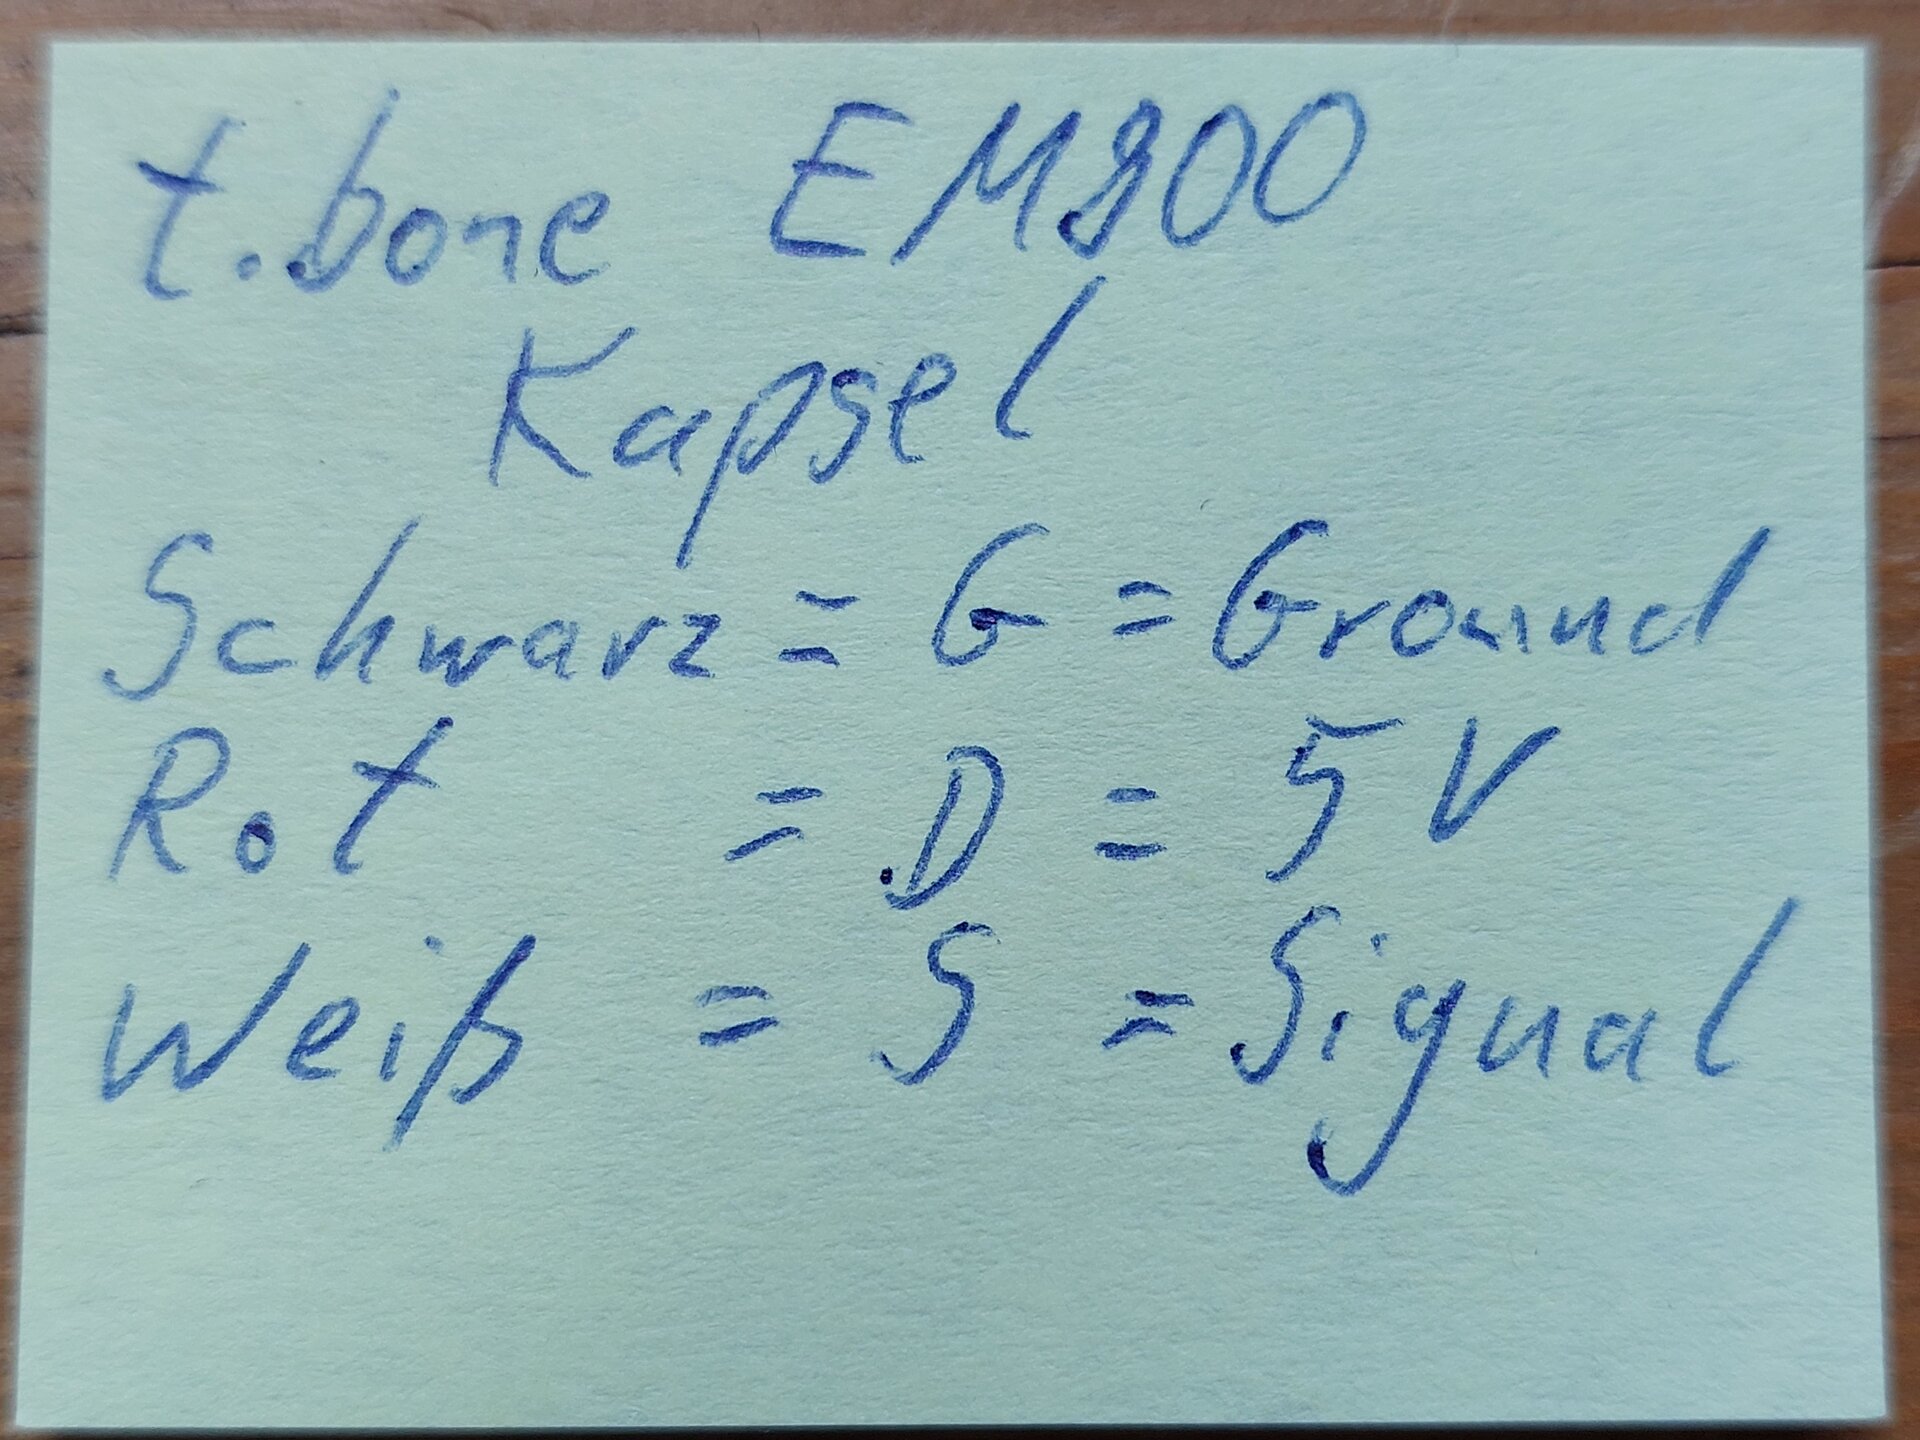 t.bone EM800
Kapsel
Schwarz = G = Ground
Rot = D = 5V
Weiß = S = Signal